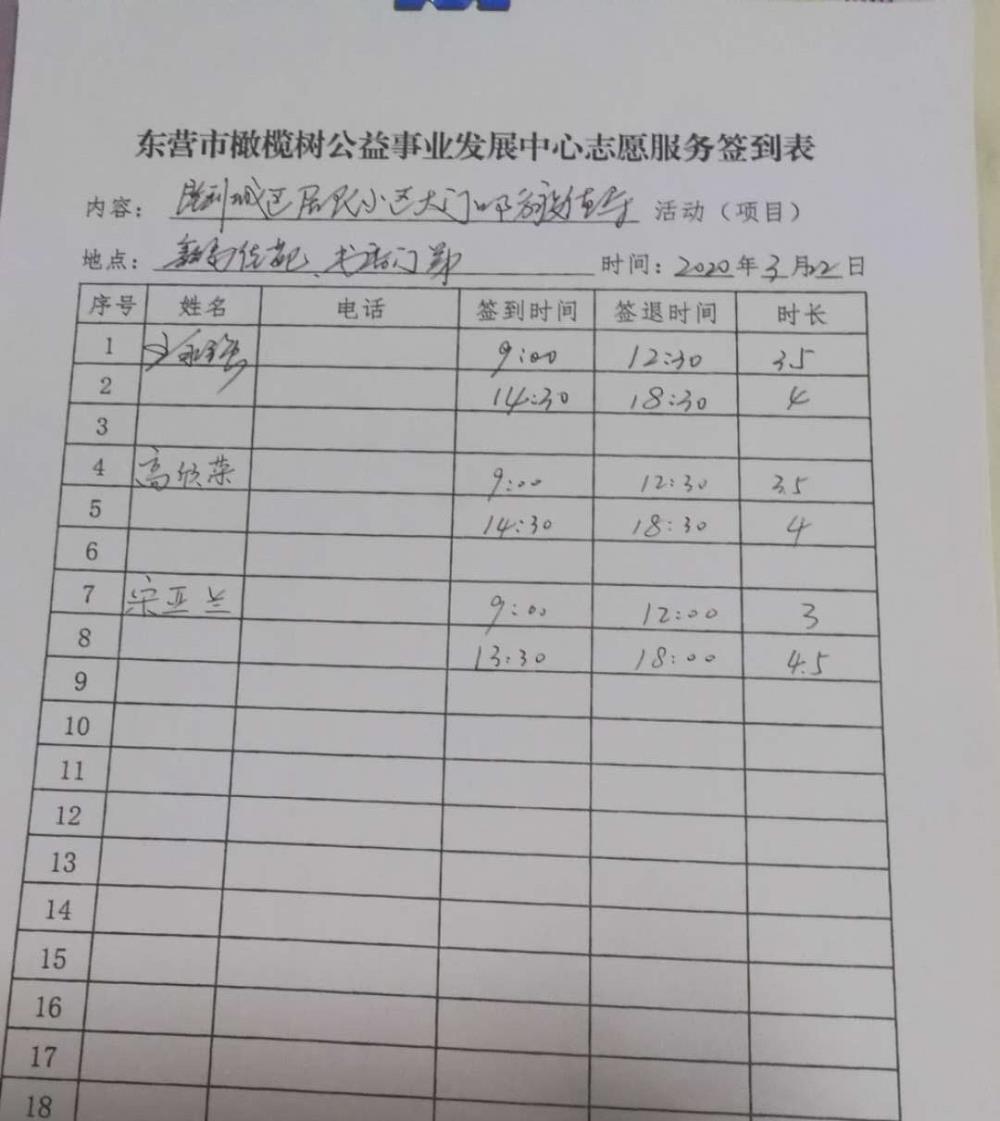 东营市橄榄树公益事业发展中心志愿服务签到表
内容：胜利城区居民小区大门口防疫值守 活动（项目）
地点： 时间：2020年3月22日
序号 姓名 电话 签到时间 签退时间 时长
1 9:00 12:30 3.5
2 14:30 18:30 4
3
4 高欣荣 9:00 12:30 3.5
5 14:30 18:30 4
6
7 宋亚兰 9:00 12:00 3
8 13:30 18:00 4.5
9
10
11
12
13
14
15
16
17
18